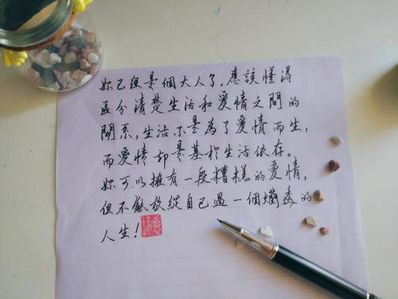 妳已經是個大人了.應該懂得
區分清楚生活和爱情之間的
關系,生活不是為了爱情而生,
而爱情却是基於生活依存。
妳可以擁有一段糟糕的爱情,
但不能放縱自己過一個爛透的
人生!